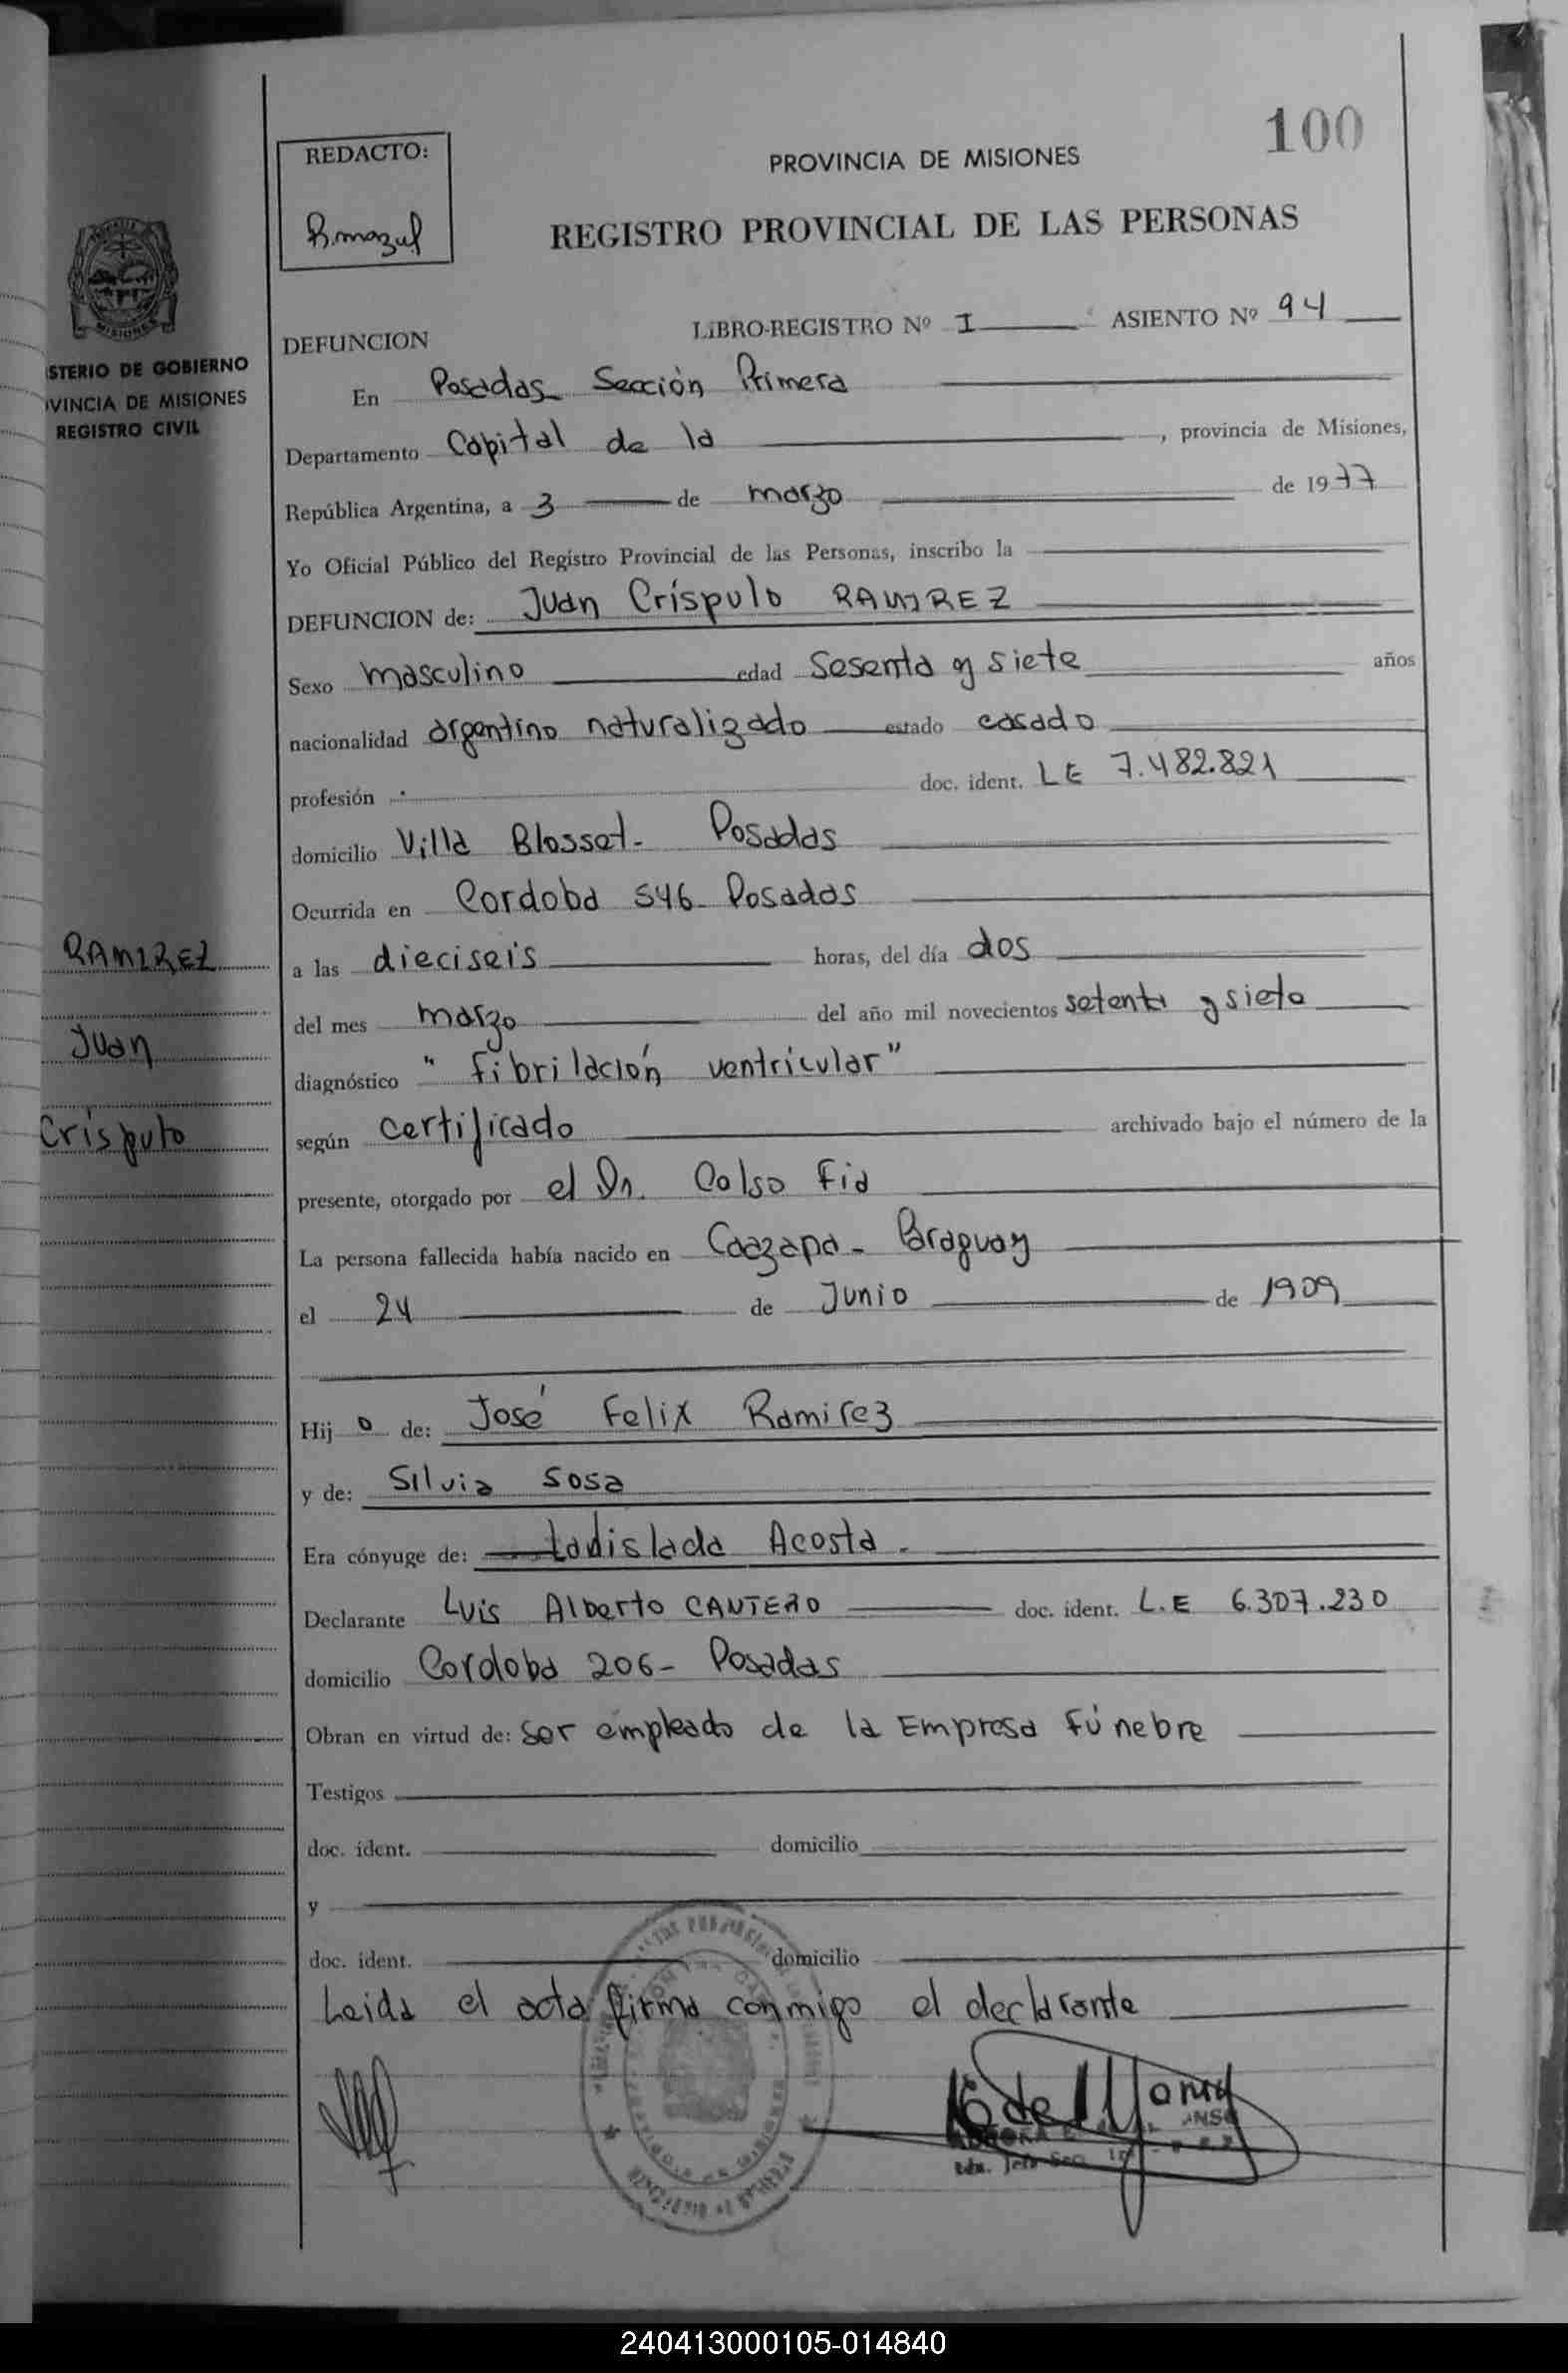 100
REDACTO:
PROVINCIA DE MISIONES
B. mazul
REGISTRO PROVINCIAL DE LAS PERSONAS
DEFUNCION
LIBRO-REGISTRO Nº I
ASIENTO Nº 94
STERIO DE GOBIERNO
VINCIA DE MISIONES
REGISTRO CIVIL
En Posadas Sección Primera
Departamento Capital de la, provincia de Misiones,
República Argentina, a 3 de marzo de 1977
Yo Oficial Público del Registro Provincial de las Personas, inscribo la
DEFUNCION de: Juan Críspulo RAMIREZ
Sexo masculino edad sesenta y siete años
nacionalidad argentino naturalizado estado casado
profesión doc. ident. LE 7.482.821
domicilio Villa Blosset- Posadas
Ocurrida en Cordoba 546- Posadas
RAMIREZ
a las dieciseis horas, del día dos
del mes marzo del año mil novecientos setenta y siete
Juan
diagnóstico "fibrilación ventricular"
Críspulo
según certificado archivado bajo el número de la
presente, otorgado por el Dr. Celso Fid
La persona fallecida había nacido en Caazapa- Paraguay
el 24 de Junio de 1909
Hijo de: José Felix Ramirez
y de: Silvia Sosa
Era cónyuge de: Ladislada Acosta.
Declarante Luis Alberto CANTERO doc. ident. L.E 6.307.230
domicilio Cordoba 206- Posadas
Obran en virtud de: ser empleado de la Empresa Fúnebre
Testigos
doc. ident. domicilio
y
doc. ident. domicilio
Leida el acta firma conmigo el declarante
240413000105-014840